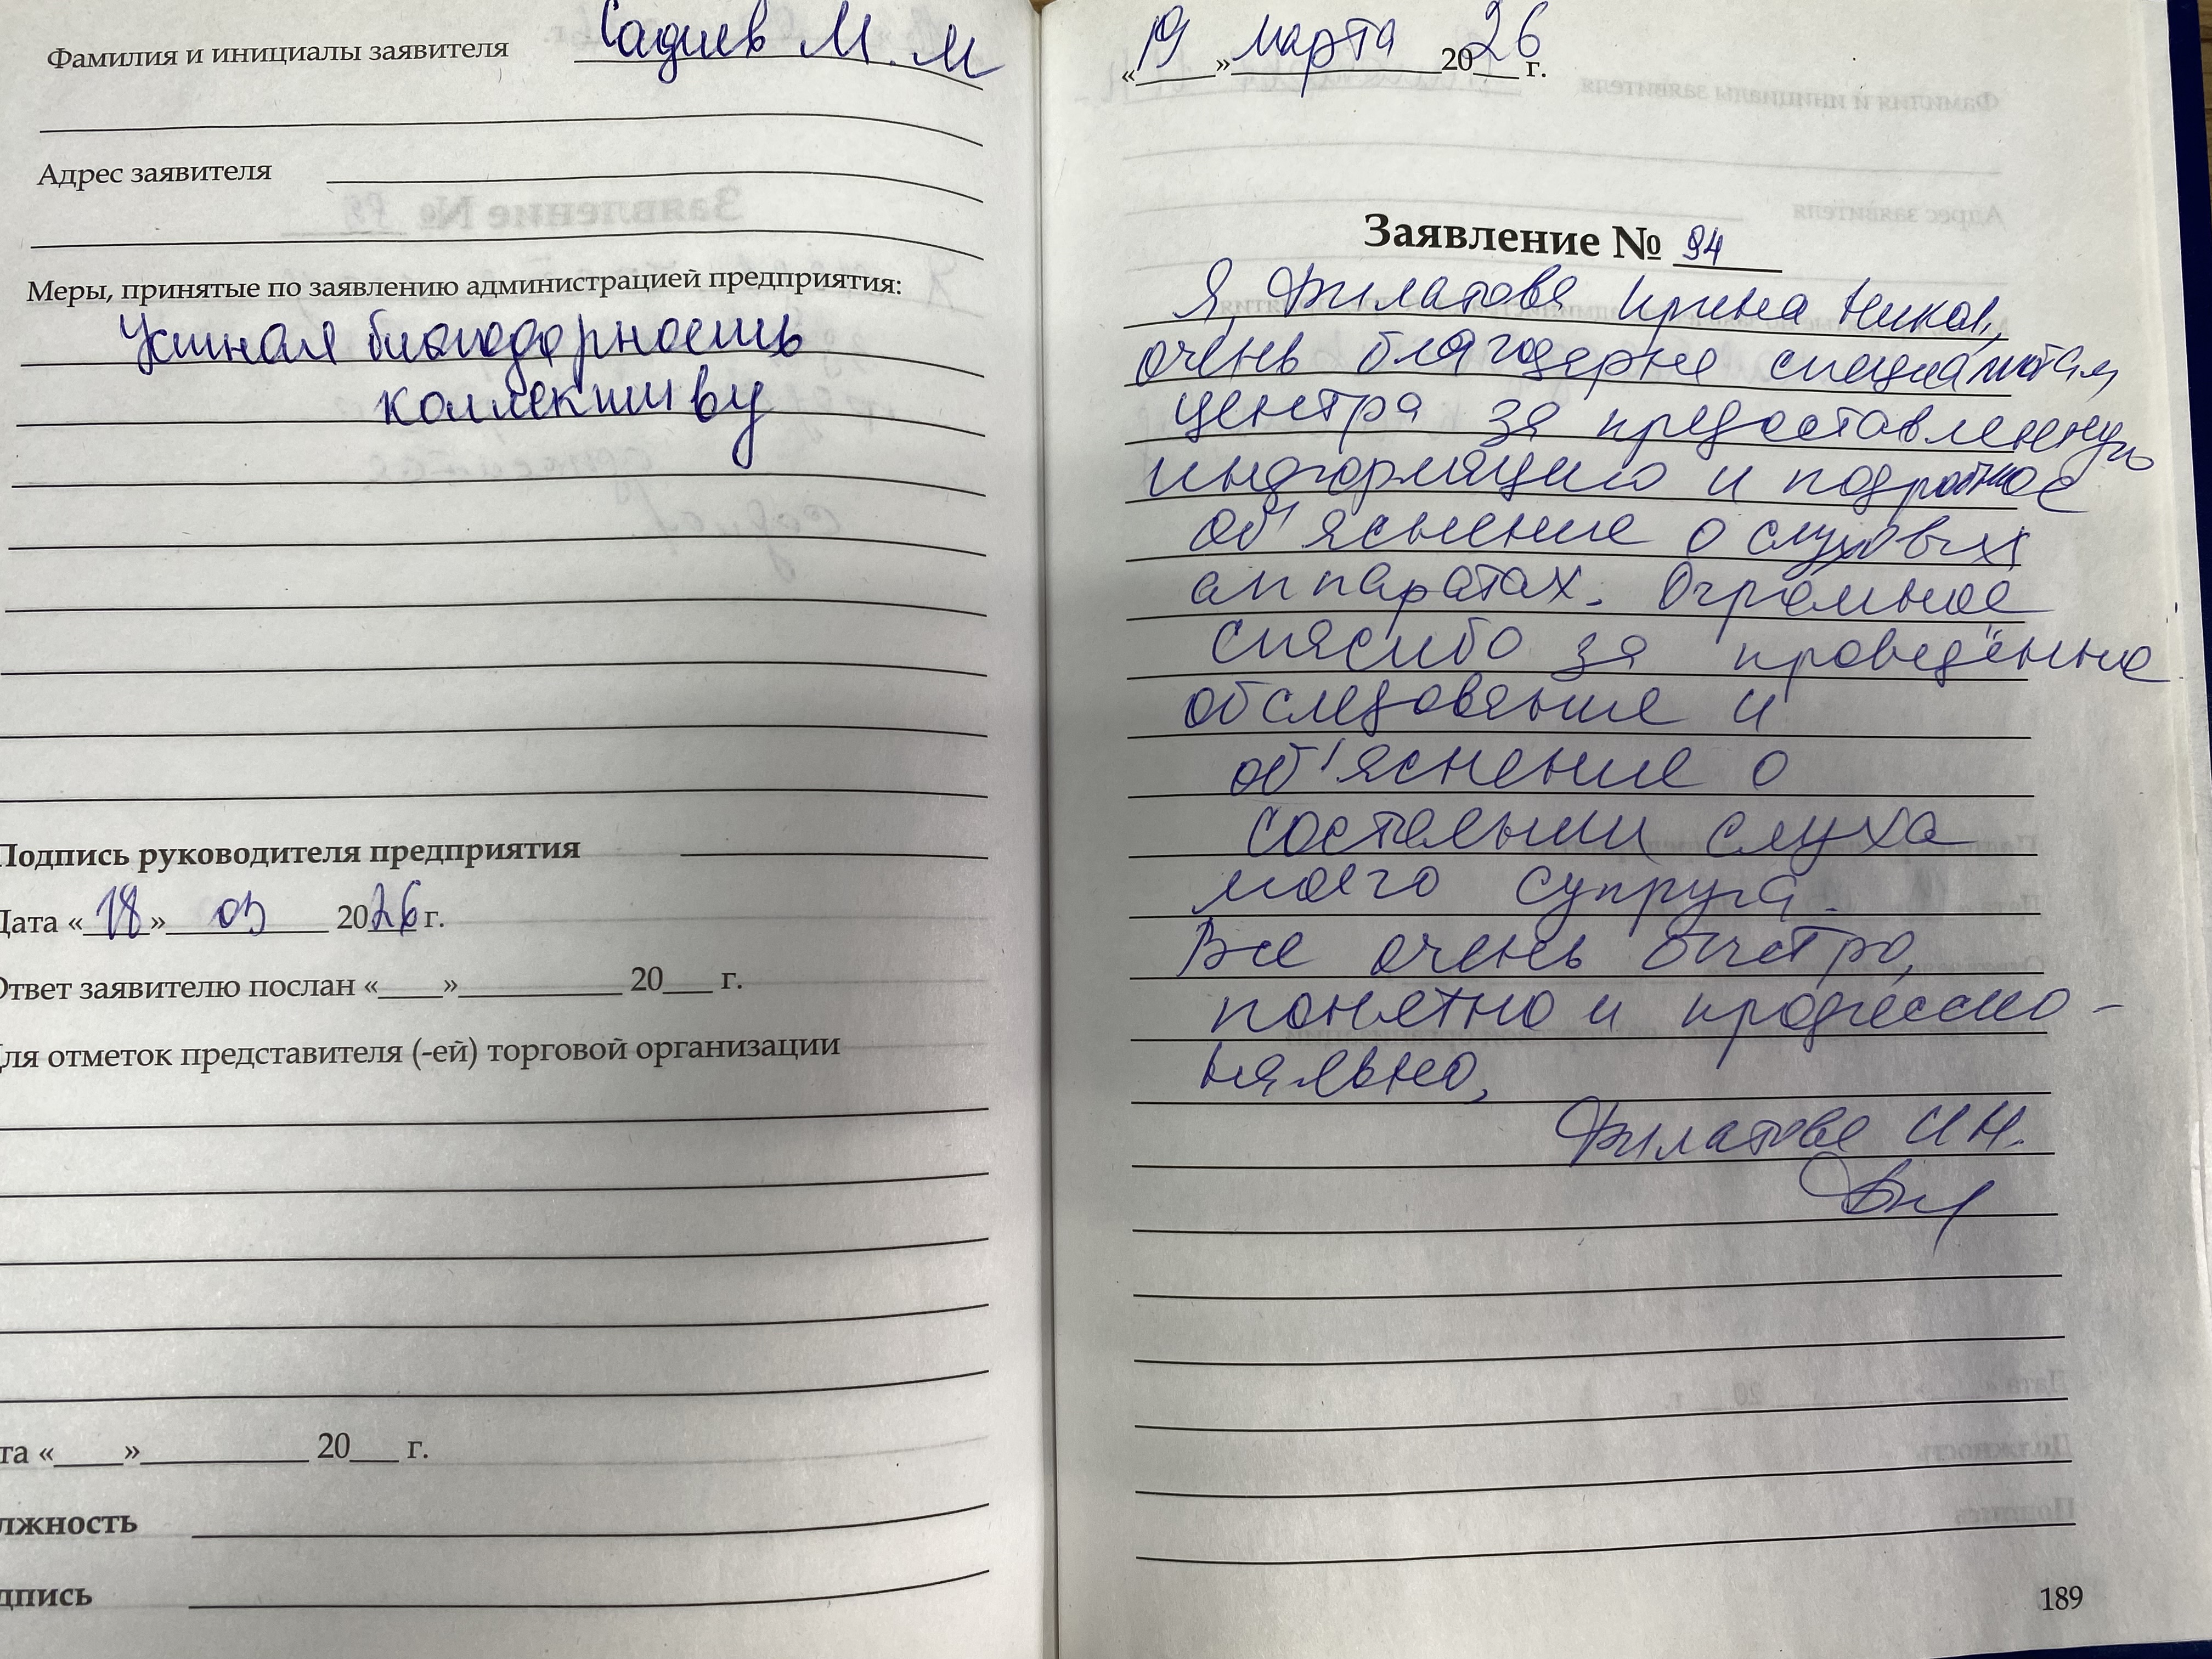 Фамилия и инициалы заявителя Садиев М. М
Адрес заявителя
Меры, принятые по заявлению администрацией предприятия:
Устная благодарность
коллективу
Подпись руководителя предприятия
Дата «18» 03 2026 г.
Ответ заявителю послан «____»____________ 20___ г.
для отметок представителя (-ей) торговой организации
та «____»____________ 20___ г.
лжность
дпись
«19» марта 2026 г.
Заявление № 94
Я, Филатова Ирина Никол,
очень благодарна специалистам
центра за предоставленную
информацию и подробное
об'яснение о слуховых
аппаратах. Огромное
спасибо за проведённое
обследование и
об'яснение о
состоянии слуха
моего супруга.
Все очень быстро,
понятно и профессио-
нально,
Филатова И Н.
189